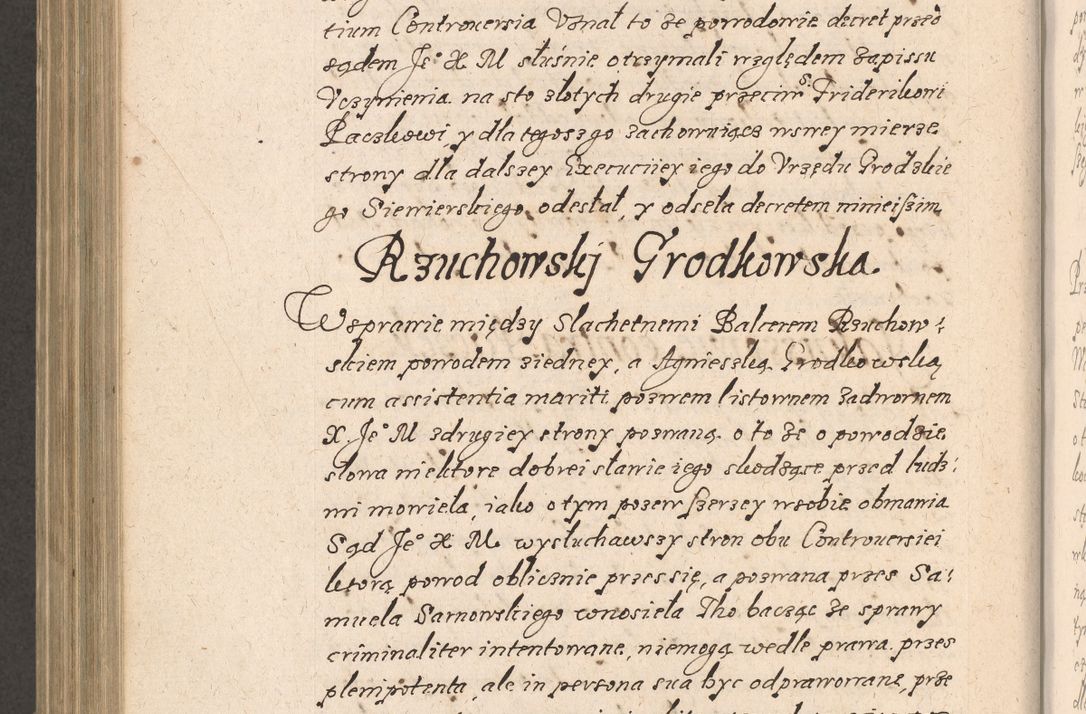 tium Controuersia Vznał to że powodowie decret przed
sądem Jeº X M słusnie otrzymali względem zapissu
Vczynienia na sto złotych drugie przeciw S. Friderikowi
Paczkowi, y dla tegoszgo zachowuiącz wswey mierze
strony dla dalszey Execucijey iego do Vrzędu Grodzkie
go Siewierskiego, odesłał, y odseła decretem ninieiszim
Rzuchowskj Grodkowska.
Wsprawie między Slachetnemi Balcerem Rzuchow:
skiem powodem ziedney, a Agnieszką Grodkowską
cum assistentia mariti pozwem listownem zadwornem
X. Jeº M zdrugiey strony pozwaną o to że o powodzie
słowa niektore dobrei sławie iego skodzące przed ludz:
mi mowieła, iako o tym pozew szerzey wsobie obmawia
Sąd Jeº X M. wysłuchawszy stron obu Controuersiei
ktorą powod oblicznie przes się, a pozwana przes Sa:
muela Sarnowskiego wnosieła Tho bacząc że sprawy
criminaliter intentowane, niemogą wedle prawa przes
plenipotenta, ale in persona sua byc odprawowane, prze